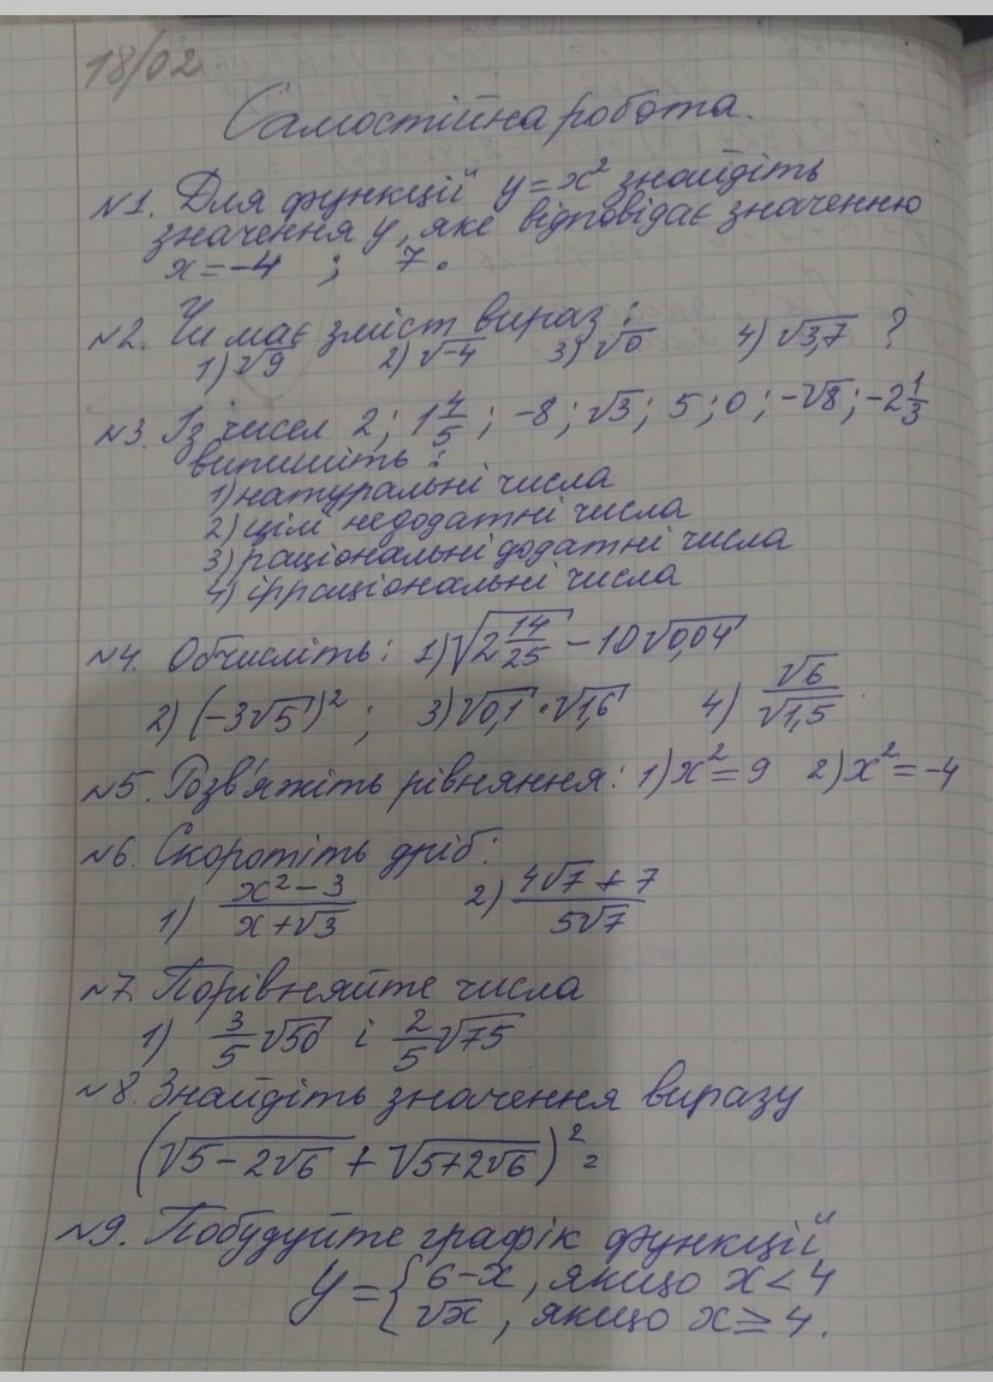 18/02
Самостійна робота.
№1. Для функції y=x² знайдіть
значення y, яке відповідає значенню
x=-4 ; 7.
№2. Чи має зміст вираз:
1)√9 2)√-4 3)√0 4)√3,7 ?
№3 Із чисел 2; 1 4/5; -8; √3; 5; 0; -√8; -2 1/3
випишіть:
1) натуральні числа
2) цілі недодатні числа
3) раціональні додатні числа
4) ірраціональні числа
№4. Обчисліть: 1)√(2 14/25) - 10√0,04
2) (-3√5)²; 3)√0,1 · √1,6 4) √6/√1,5
№5. Розв'яжіть рівняння: 1)x²=9 2)x²=-4
№6. Скоротіть дріб:
1) (x²-3)/(x+√3) 2) (4√7+7)/(5√7)
№7. Порівняйте числа
1) 3/5√50 і 2/5√75
№8. Знайдіть значення виразу
(√(5-2√6) + √(5+2√6))² =
№9. Побудуйте графік функції
y={6-x, якщо x<4
√x, якщо x≥4.